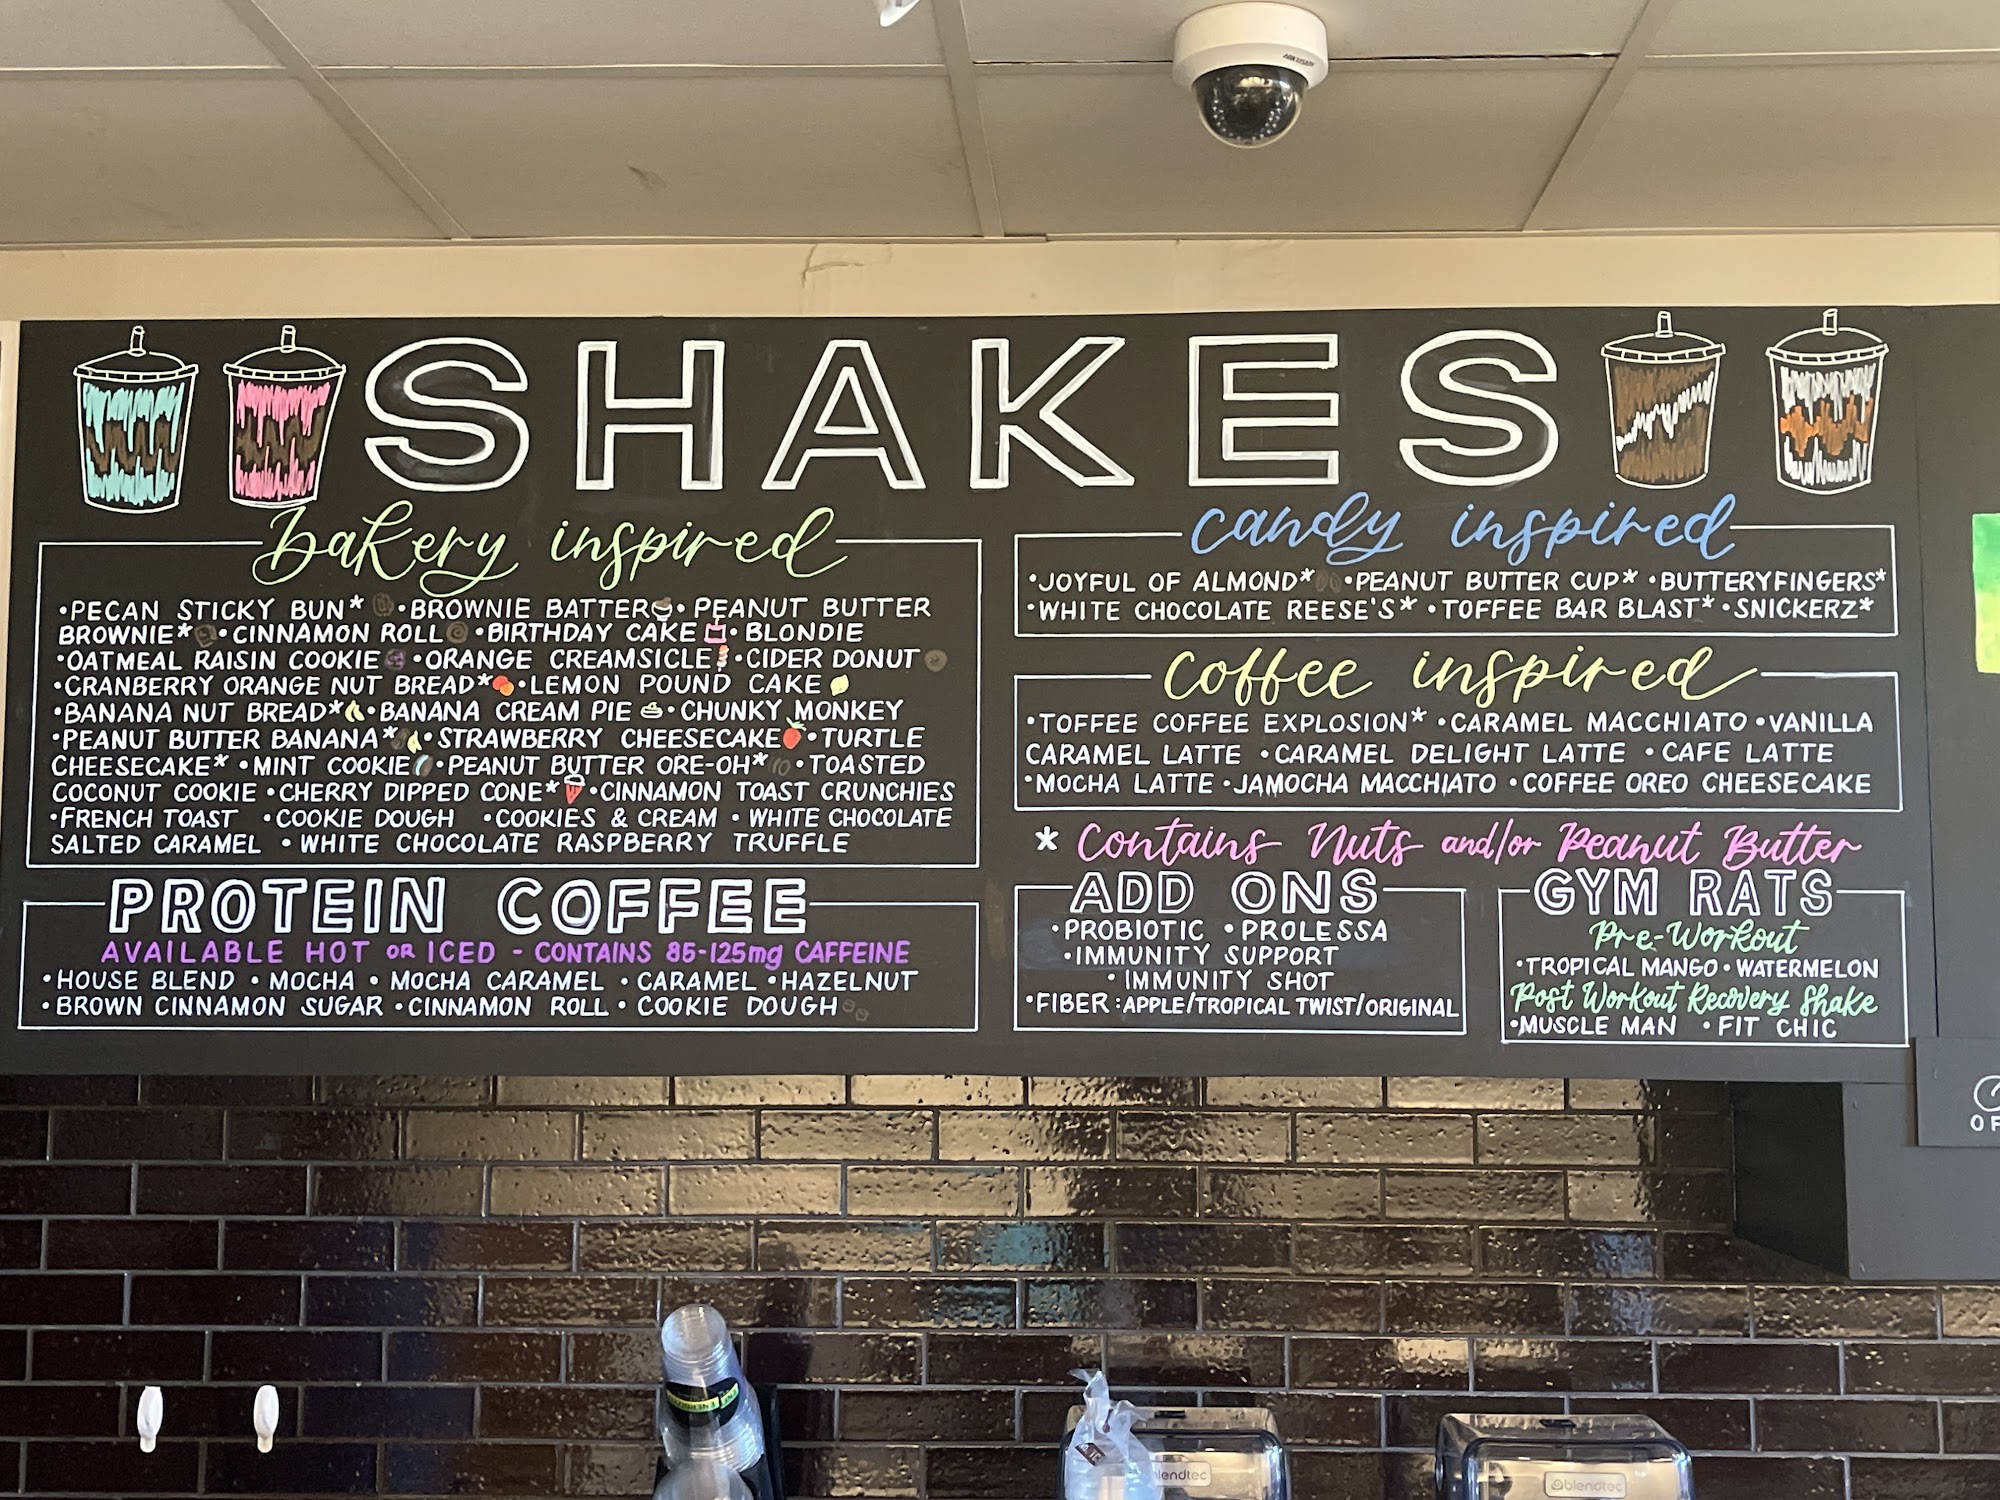 HIKVISION
SHAKES
bakery inspired
•PECAN STICKY BUN* •BROWNIE BATTER •PEANUT BUTTER
BROWNIE* •CINNAMON ROLL •BIRTHDAY CAKE •BLONDIE
•OATMEAL RAISIN COOKIE •ORANGE CREAMSICLE •CIDER DONUT
•CRANBERRY ORANGE NUT BREAD* •LEMON POUND CAKE
•BANANA NUT BREAD* •BANANA CREAM PIE •CHUNKY MONKEY
•PEANUT BUTTER BANANA* •STRAWBERRY CHEESECAKE •TURTLE
CHEESECAKE* •MINT COOKIE •PEANUT BUTTER ORE-OH* •TOASTED
COCONUT COOKIE •CHERRY DIPPED CONE* •CINNAMON TOAST CRUNCHIES
•FRENCH TOAST •COOKIE DOUGH •COOKIES & CREAM •WHITE CHOCOLATE
SALTED CARAMEL •WHITE CHOCOLATE RASPBERRY TRUFFLE
PROTEIN COFFEE
AVAILABLE HOT OR ICED - CONTAINS 85-125mg CAFFEINE
•HOUSE BLEND •MOCHA •MOCHA CARAMEL •CARAMEL •HAZELNUT
•BROWN CINNAMON SUGAR •CINNAMON ROLL •COOKIE DOUGH
candy inspired
•JOYFUL OF ALMOND* •PEANUT BUTTER CUP* •BUTTERYFINGERS*
•WHITE CHOCOLATE REESE'S* •TOFFEE BAR BLAST* •SNICKERZ*
coffee inspired
•TOFFEE COFFEE EXPLOSION* •CARAMEL MACCHIATO •VANILLA
CARAMEL LATTE •CARAMEL DELIGHT LATTE •CAFE LATTE
•MOCHA LATTE •JAMOCHA MACCHIATO •COFFEE OREO CHEESECAKE
* Contains Nuts and/or Peanut Butter
ADD ONS
•PROBIOTIC •PROLESSA
•IMMUNITY SUPPORT
•IMMUNITY SHOT
•FIBER: APPLE/TROPICAL TWIST/ORIGINAL
GYM RATS
Pre-Workout
•TROPICAL MANGO •WATERMELON
Post Workout Recovery Shake
•MUSCLE MAN •FIT CHIC
blendtec
blendtec